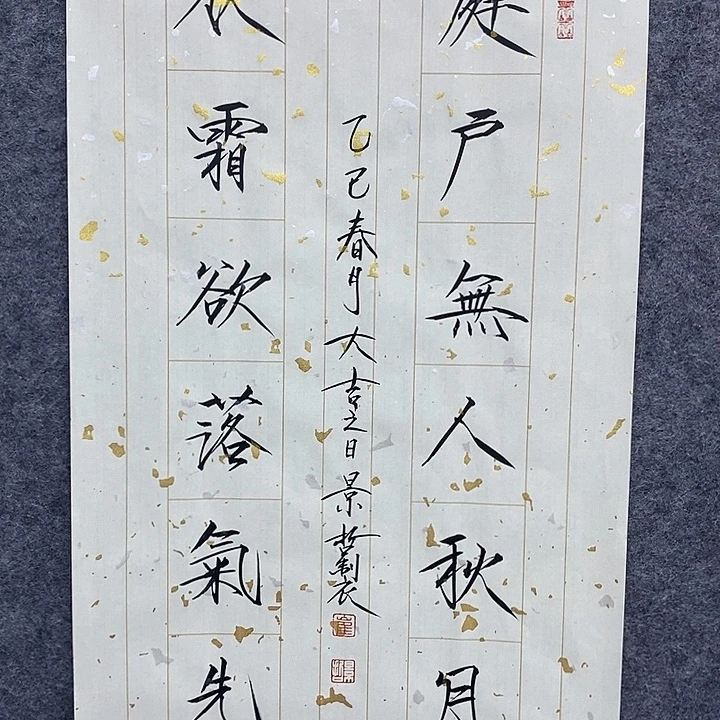 庭戶無人秋月
乙巳春月大吉之日景哲製
霜欲落氣先